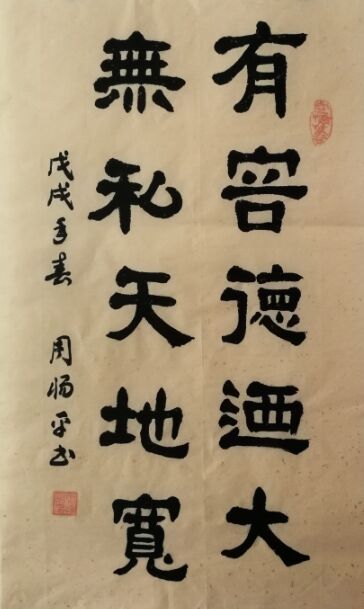 有容德迺大
無私天地寬
戊戌年春 周炀平书